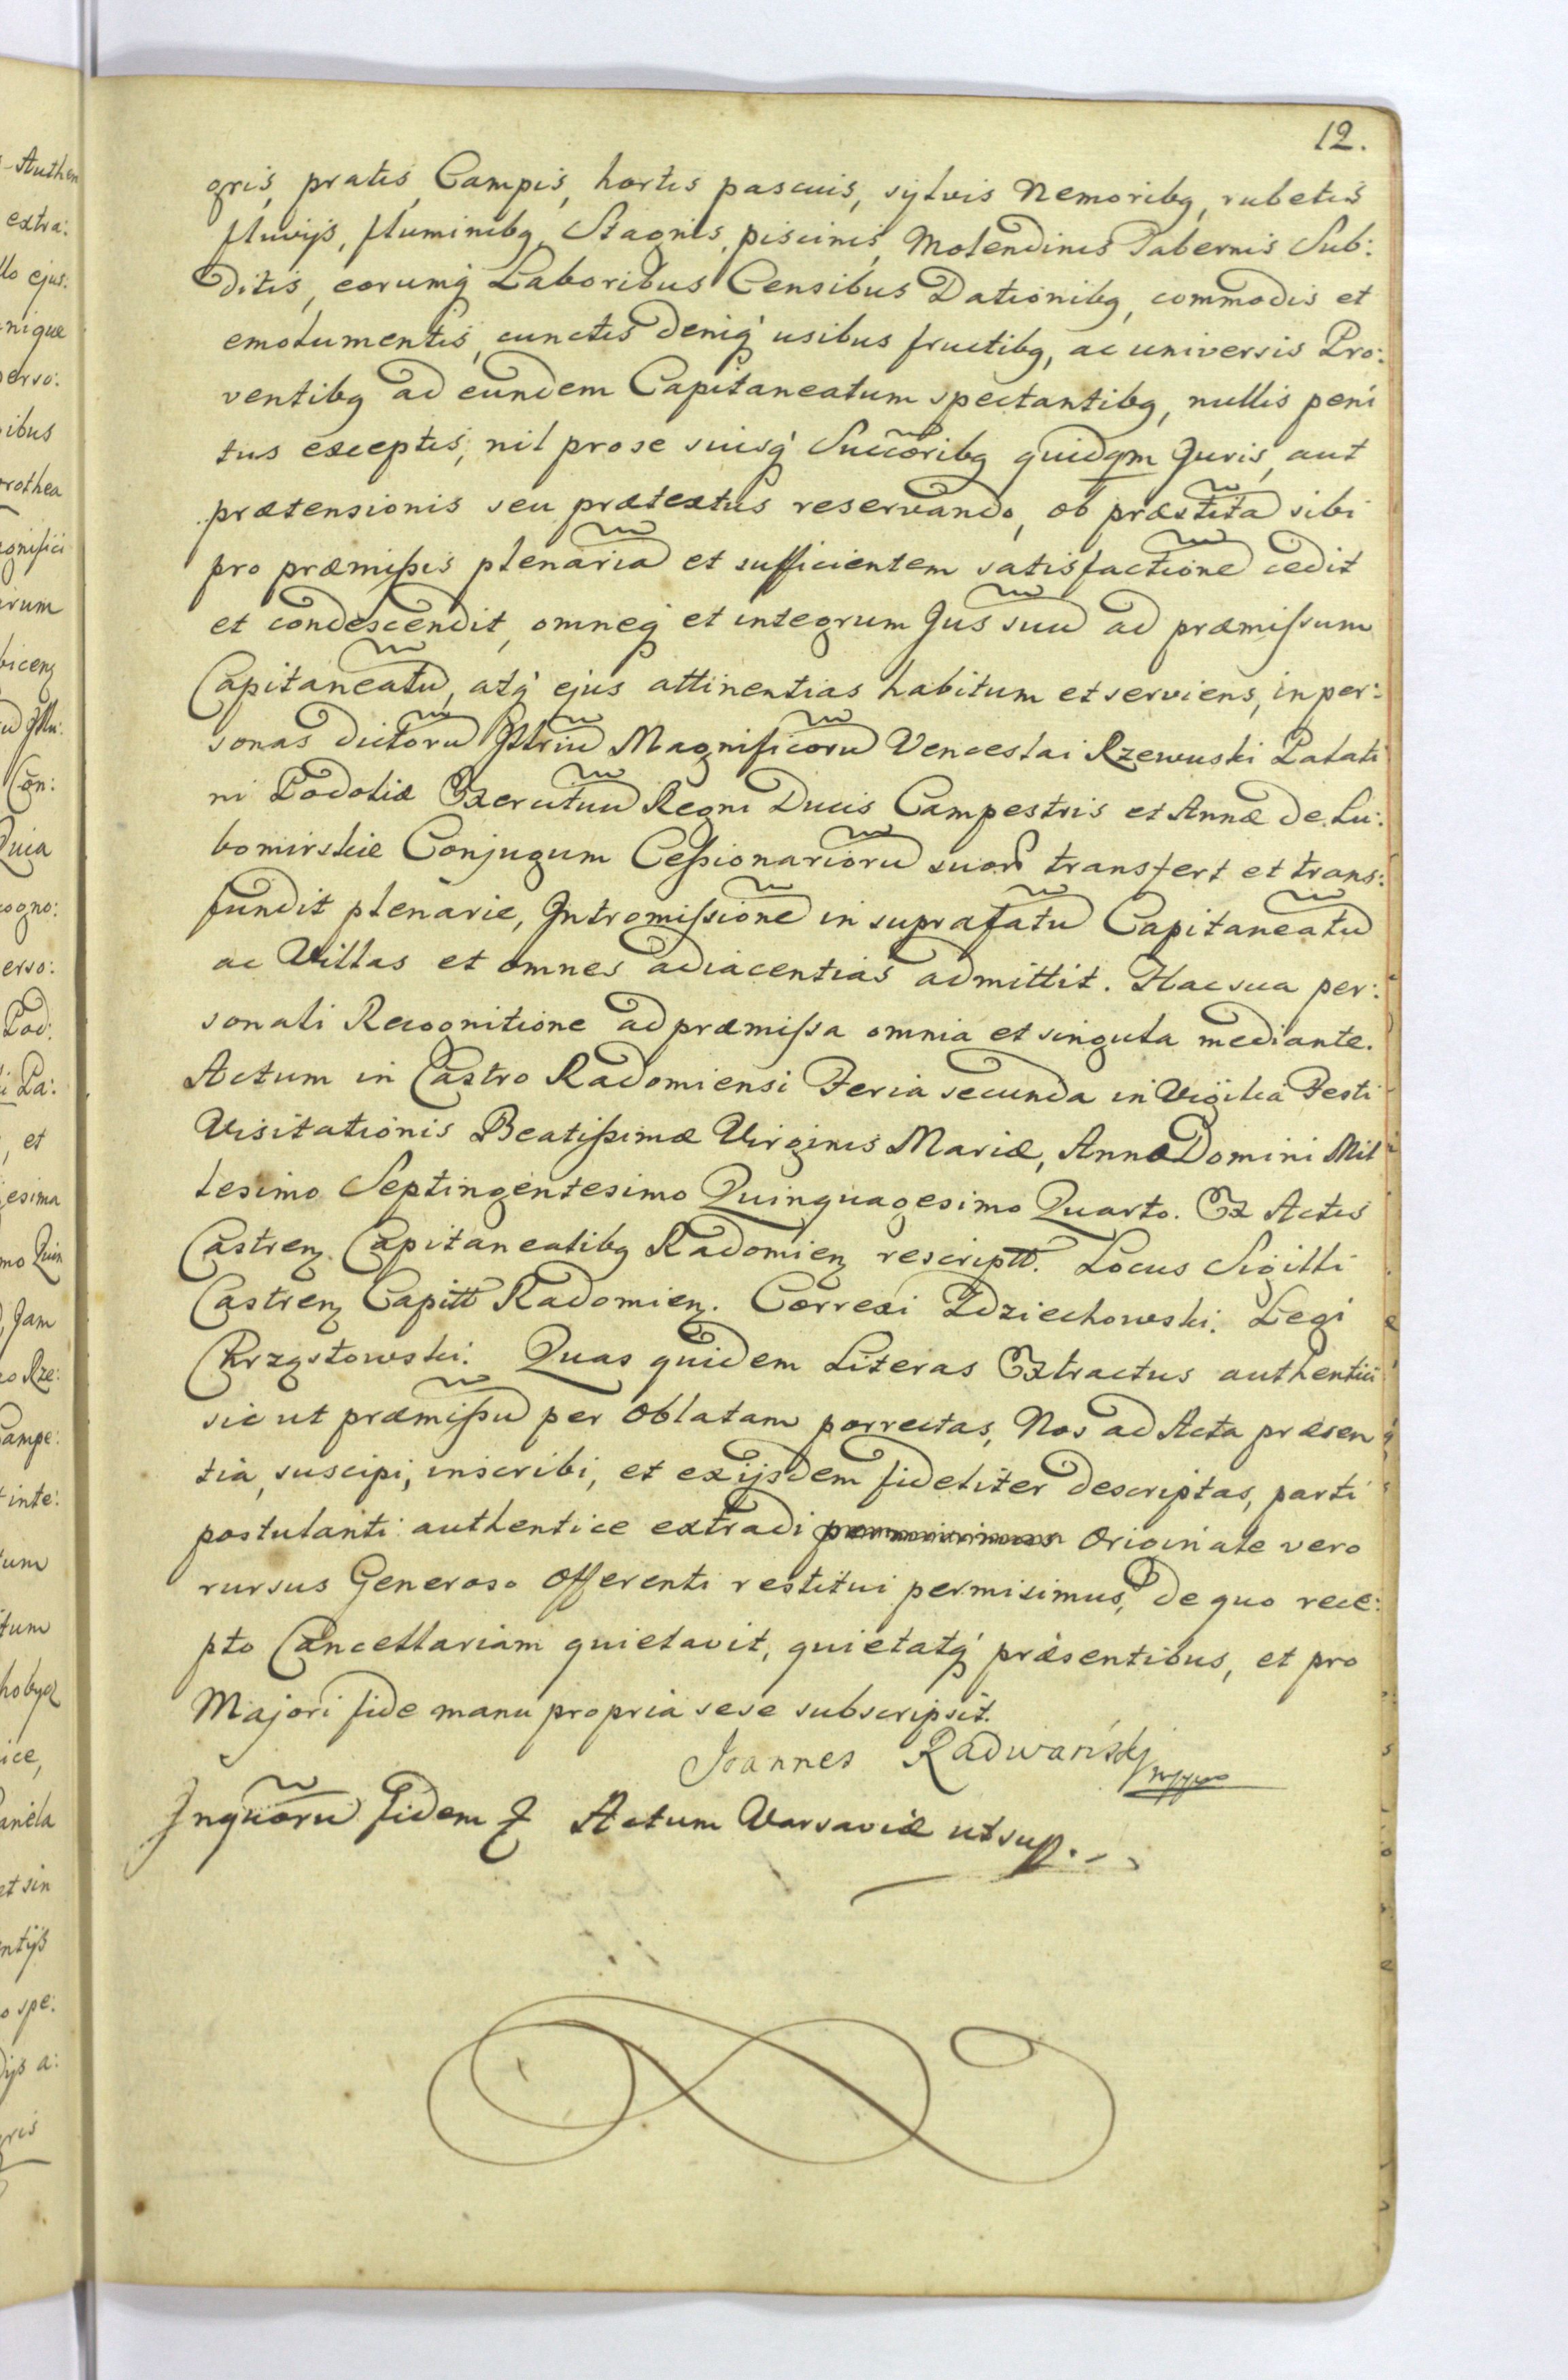 12.
gris, pratis, Campis, hortis pascuis, sylvis Nemoribq, rubetis
fluvijs, fluminibq, Stagnis, piscinis, Molendinis Tabernis Sub:
ditis, eorumq Laboribus Censibus Dationibq, commodis et
emolumentis, cunctis deniq usibus fructibq, ac universis Pro:
ventibq ad eundem Capitaneatum spectantibq, nullis peni
tus exceptis, nil pro se suisq Succõribq quidqm Juris, aut
prætensionis seu prætextus reservando, ob præstitã sibi
pro præmissis plenariã et sufficientem satisfactionẽ cedit
et condescendit, omneq et integrum Jus suũ ad præmissum
Capitaneatũ, atq ejus attinentias habitum et serviens, in per:
sonas dictorũ Jllriũ Magnificorũ Venceslai Rzewuski Palati
ni Podoliæ Exercituũ Regni Ducis Campestris et Annæ de Lu:
bomirskie Conjugum Cessionariorũ suorũ transfert et trans:
fundit plenarie, Intromissionẽ in suprafatũ Capitaneatũ
ac Villas et omnes adiacentias admittit. Hac sua per:
sonali Recognitione ad præmissa omnia et singula mediante.
Actum in Castro Radomiensi Feria secunda in Vigilia Festi
Visitationis Beatissimæ Virginis Mariæ, Anno Domini Mil
lesimo Septingentesimo Quinquagesimo Quarto. Ex Actis
Castren. Capitanealibq Radomien rescriptt. Locus Sigilli
Castren Capitt Radomien. Correxi Zdziechowski. Legi
Chrząstowski. Quas quidem Literas Extractus authentici
sic ut præmissũ per Oblatam porrectas, Nos ad Acta præsen
tia, suscipi, inscribi, et ex ijsdem fideliter descriptas, parti
postulanti authentice extradi Originale vero
rursus Generoso Offerenti restitui permisimus, de quo rece:
pto Cancellariam quietavit, quietatq præsentibus, et pro
Majori fide manu propria sese subscripsit.
Joannes Radwański mppa
In quorũ fidem Actum Varsaviæ ut sup.